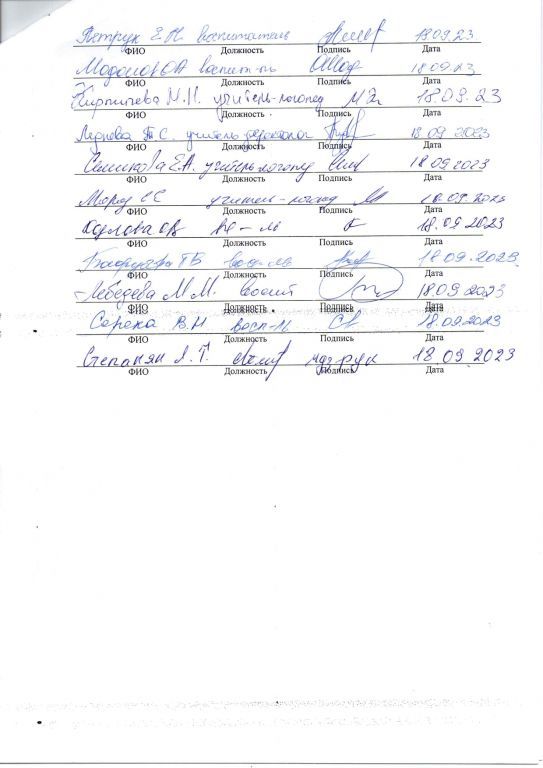 Петрук Е.Н. воспитатель 18.09.23
ФИО Должность Подпись Дата
воспит-ль 18.09.23
ФИО Должность Подпись Дата
Кирпичева М.Н. учитель-логопед 18.09.23
ФИО Должность Подпись Дата
Леднева Т.С. учитель дефектолог 18 09 2023
ФИО Должность Подпись Дата
Семикова Е.А. учитель логопед 18 09 2023
ФИО Должность Подпись Дата
Мороз учитель-логопед 18.09.2023
ФИО Должность Подпись Дата
Козлова 18.09 2023
ФИО Должность Подпись Дата
18.09.2023
ФИО Должность Подпись Дата
Лебедева М.М. воспит 18 09 2023
ФИО Должность Подпись Дата
ФИО Должность Подпись Дата
В.Н восп-ль 18.09.2023
ФИО Должность Подпись Дата
Степанян Л.Т. 18 09 2023
ФИО Должность Подпись Дата